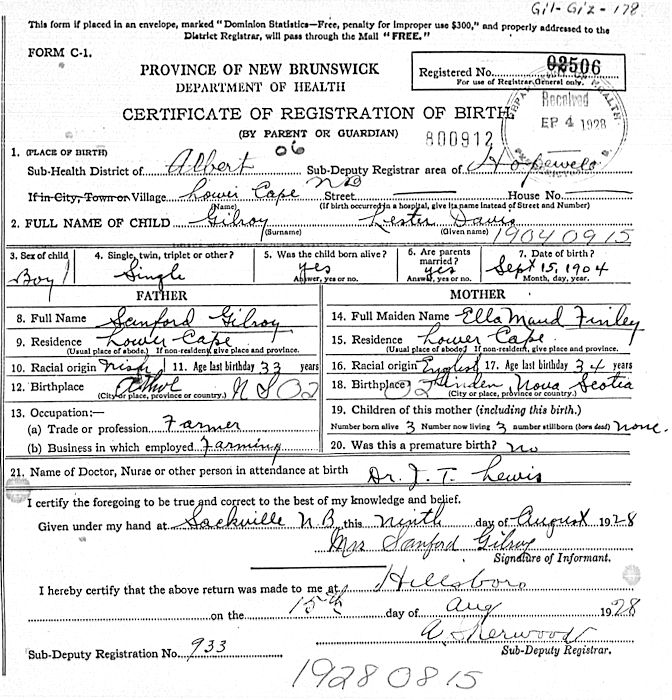 Gil-Giz-178
This form if placed in an envelope, marked "Dominion Statistics—Free, penalty for improper use $300," and properly addressed to the
District Registrar, will pass through the Mail "FREE."
FORM C-1.
PROVINCE OF NEW BRUNSWICK
DEPARTMENT OF HEALTH
Registered No. 02506
For use of Registrar General only.
CERTIFICATE OF REGISTRATION OF BIRTH
(BY PARENT OR GUARDIAN)
800912
Received
SEP 4 1928
1. (PLACE OF BIRTH) 06
Sub-Health District of Albert Sub-Deputy Registrar area of Hopewell
If in City, Town or Village Lower Cape NB Street House No.
(Name) (If birth occurred in a hospital, give its name instead of Street and Number)
2. FULL NAME OF CHILD Gilroy Lester Davis
(Surname) (Given name) 19040915
3. Sex of child 4. Single, twin, triplet or other? 5. Was the child born alive? 6. Are parents married? 7. Date of birth?
Boy Single yes yes Sept 15, 1904
Answer, yes or no. Answer, yes or no. Month, day, year.
FATHER MOTHER
8. Full Name Sanford Gilroy 14. Full Maiden Name Ella Maud Finley
9. Residence Lower Cape 15. Residence Lower Cape
(Usual place of abode.) If non-resident, give place and province. (Usual place of abode) If non-resident, give place and province.
10. Racial origin Irish 11. Age last birthday 33 years 16. Racial origin English 17. Age last birthday 34 years
12. Birthplace Athol N S 02 18. Birthplace 02 Linden Nova Scotia
(City or place, province or country.) (City or place, province or country.)
13. Occupation:— 19. Children of this mother (including this birth.)
(a) Trade or profession Farmer Number born alive 3 Number now living 3 number stillborn (born dead) none.
(b) Business in which employed Farming 20. Was this a premature birth? no
21. Name of Doctor, Nurse or other person in attendance at birth Dr. J. T. Lewis
I certify the foregoing to be true and correct to the best of my knowledge and belief.
Given under my hand at Sackville N.B. this Ninth day of August 1928
Mrs Sanford Gilroy
Signature of Informant.
I hereby certify that the above return was made to me at Hillsboro
on the 15th day of Aug 1928
A Sherwood
Sub-Deputy Registration No. 933 Sub-Deputy Registrar.
19280815